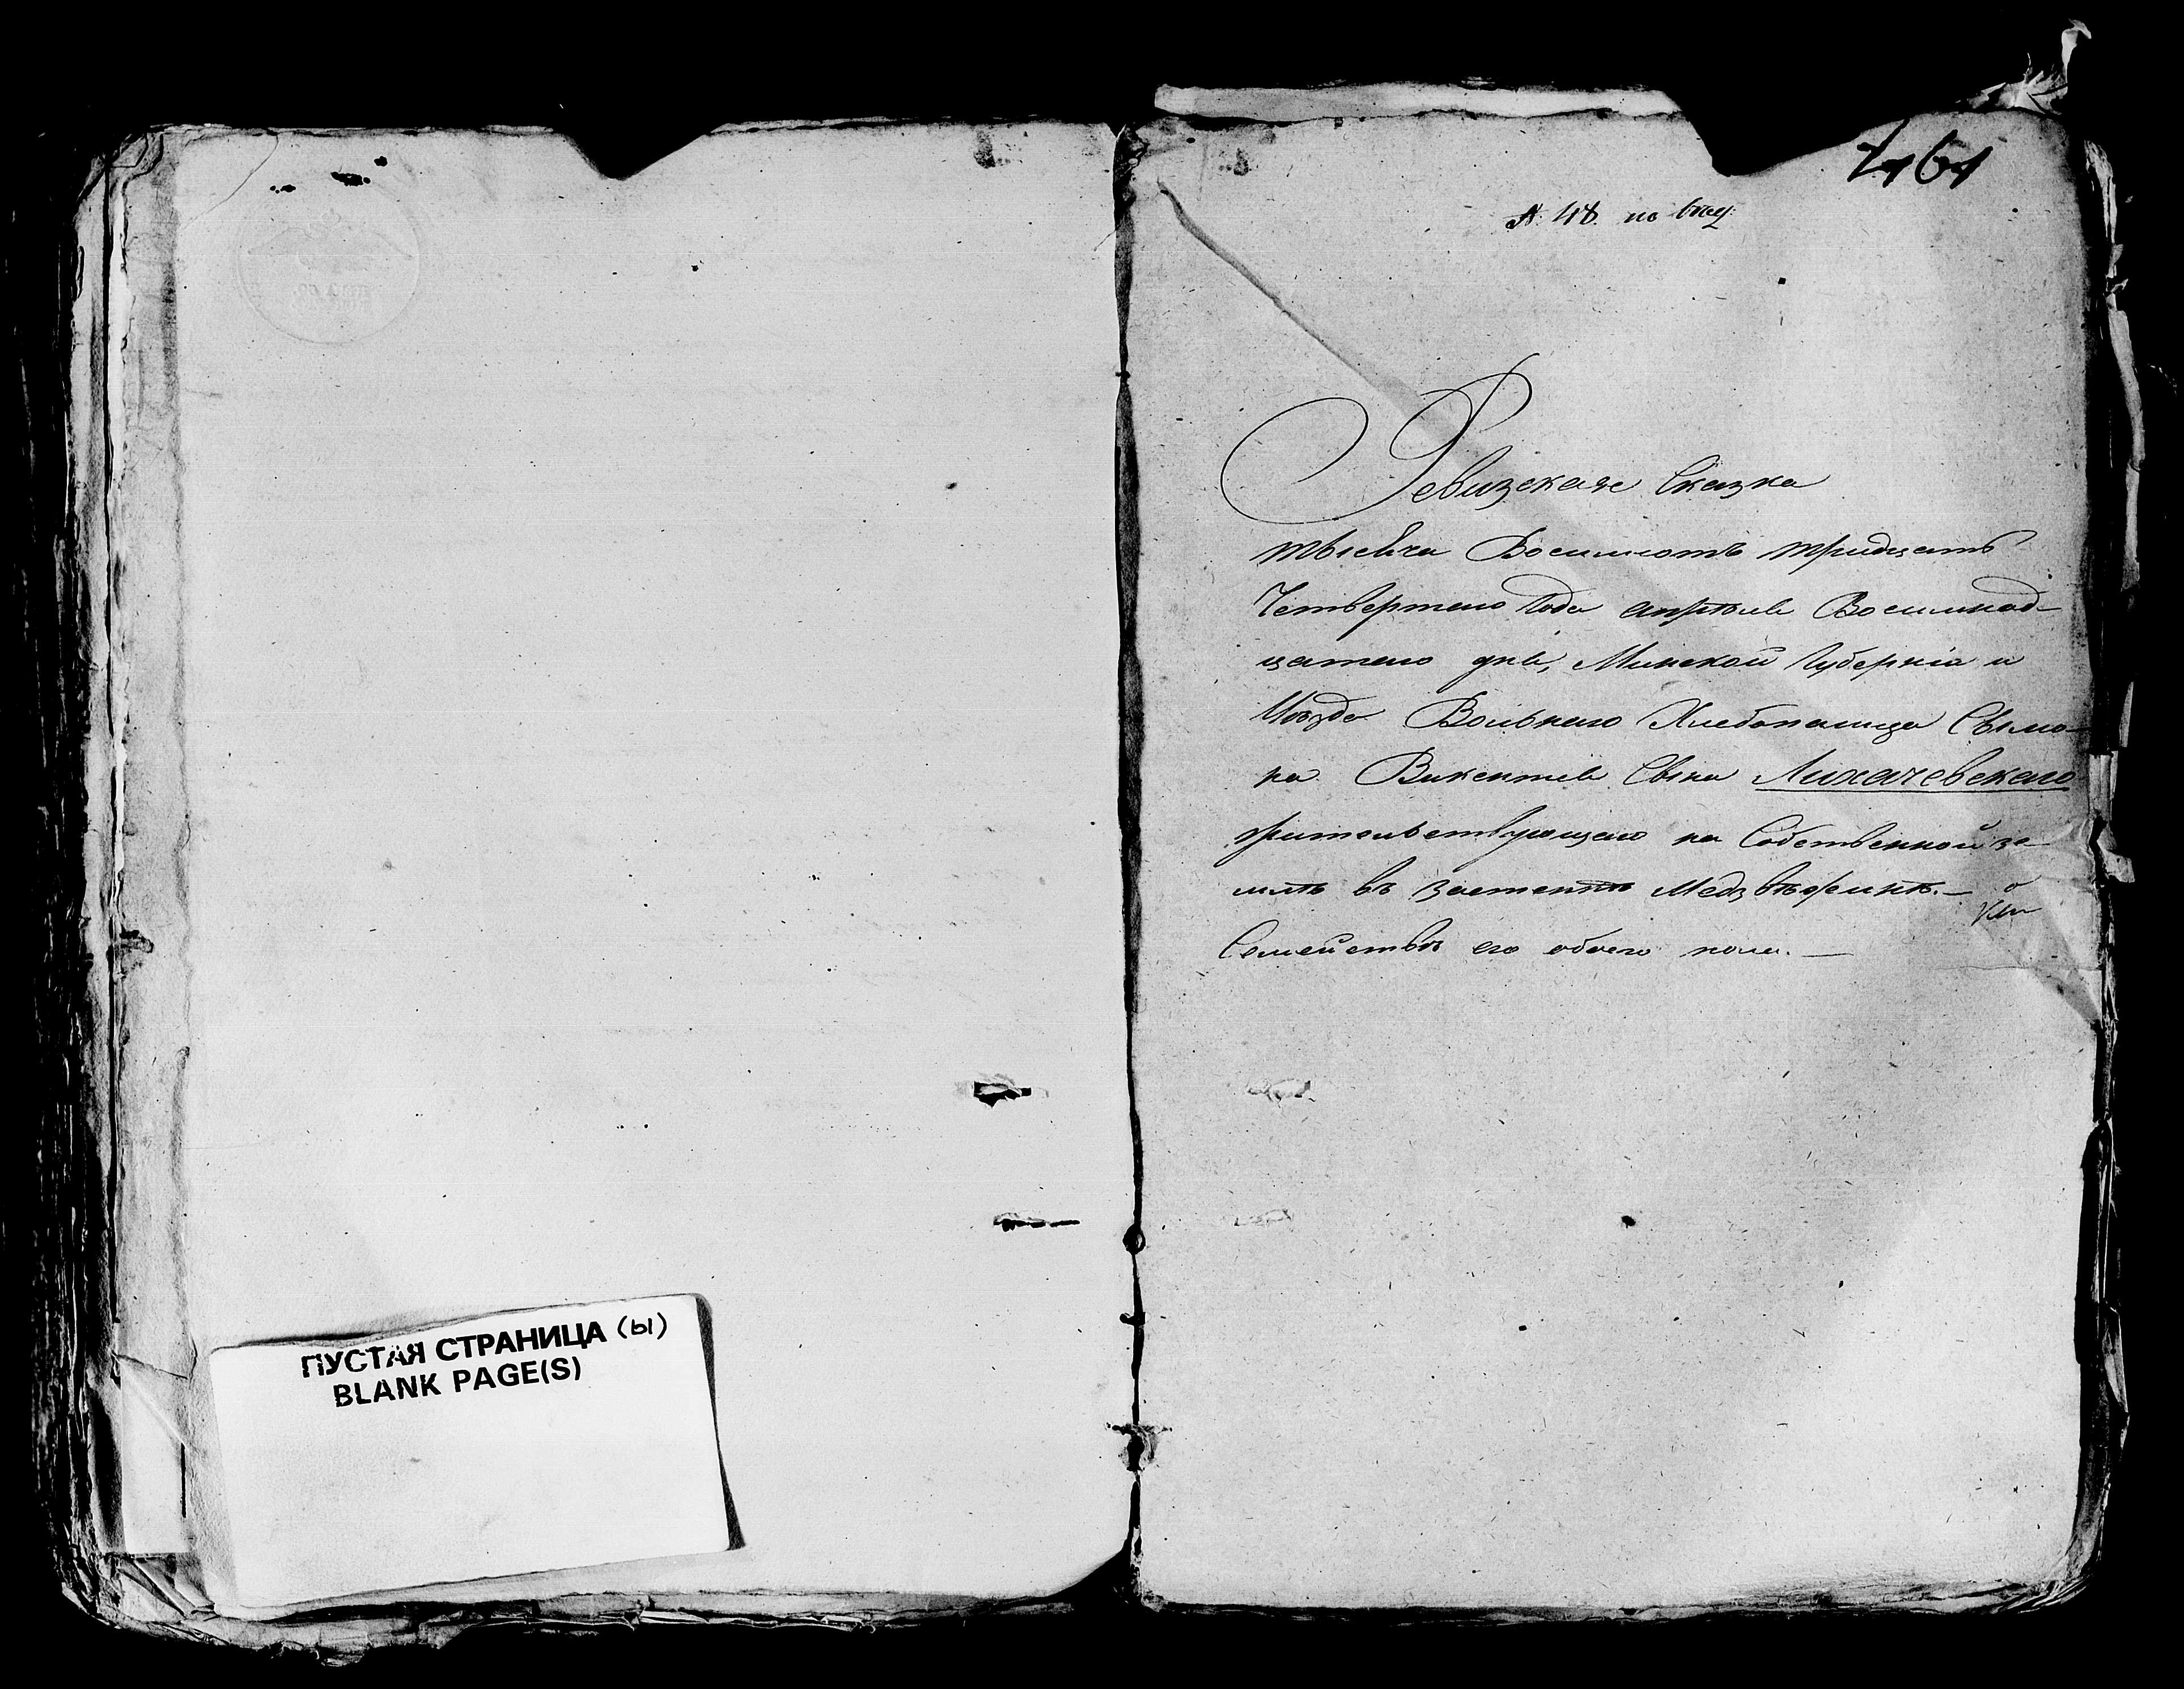 ПУСТАЯ СТРАНИЦА (ы)
BLANK PAGE(S)
№ 48 по
Ревизская Сказка
тысяча Восемьсотъ тридцать
Четвертаго Года апрѣля Восемнад-
цатаго дня, Минской Губерніи и
Уѣзда Вольнаго Хлебопашца
Викентія Сына Лихачевскаго
жительствующаго на Собственной зе-
млѣ въ застенкѣ Медзвѣжинѣ. - о
Семействѣ его обоего пола. -